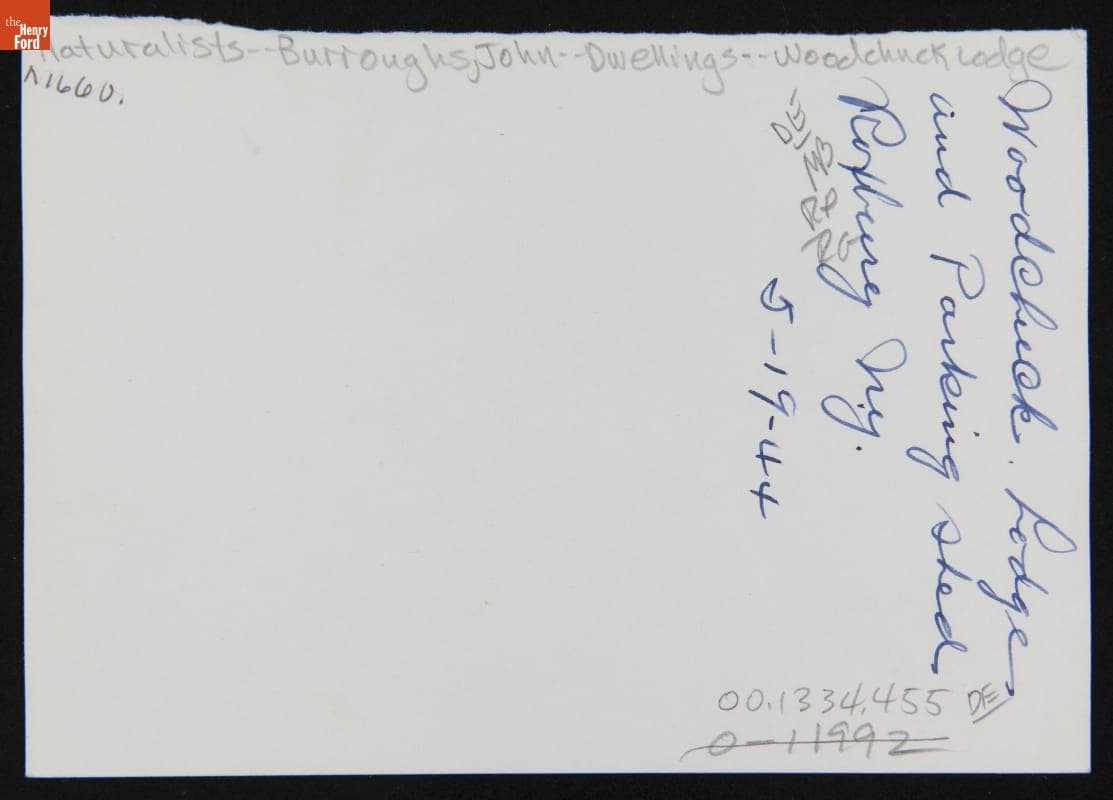 the
Henry
Ford
Naturalists--Burroughs, John--Dwellings--Woodchuck Lodge
1660.
Woodchuck Lodge,
and Parking shed
Roxbury Ny.
5-19-44
00.1334.455 DE
0-11992